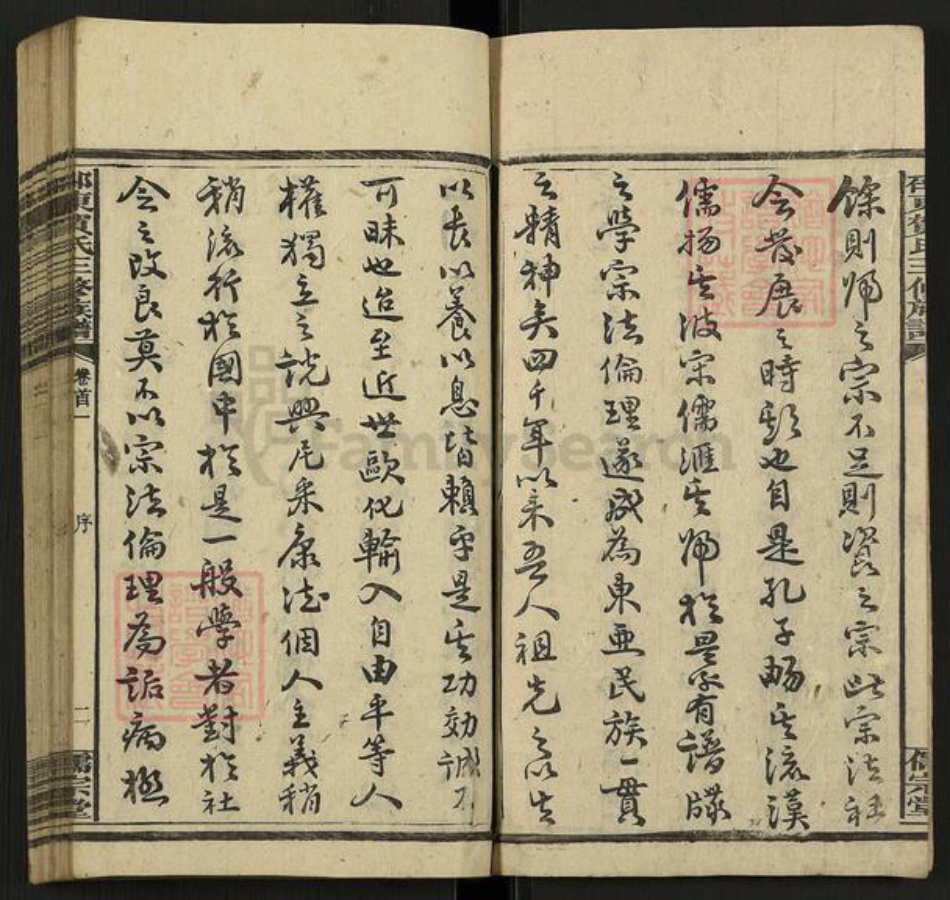 餘則歸之宗不足則資之宗此宗法社
會發展之時期也自是孔子暢其流漢
儒揚其波宋儒匯其歸於是家有譜牒
之學宗法倫理遂成為東亞民族一貫
之精神矣四千年以來吾人祖先之以生
以長以養以息皆賴乎是其功效誠不
可昧也迨至近世歐化輸入自由平等人
權獨立之說興尼采康德個人主義稍
稍流行於國中於是一般學者對於社
會之改良莫不以宗法倫理為詬病極
邵東賀氏三修族譜
卷首一
序
二
儒宗堂
FamilySearch